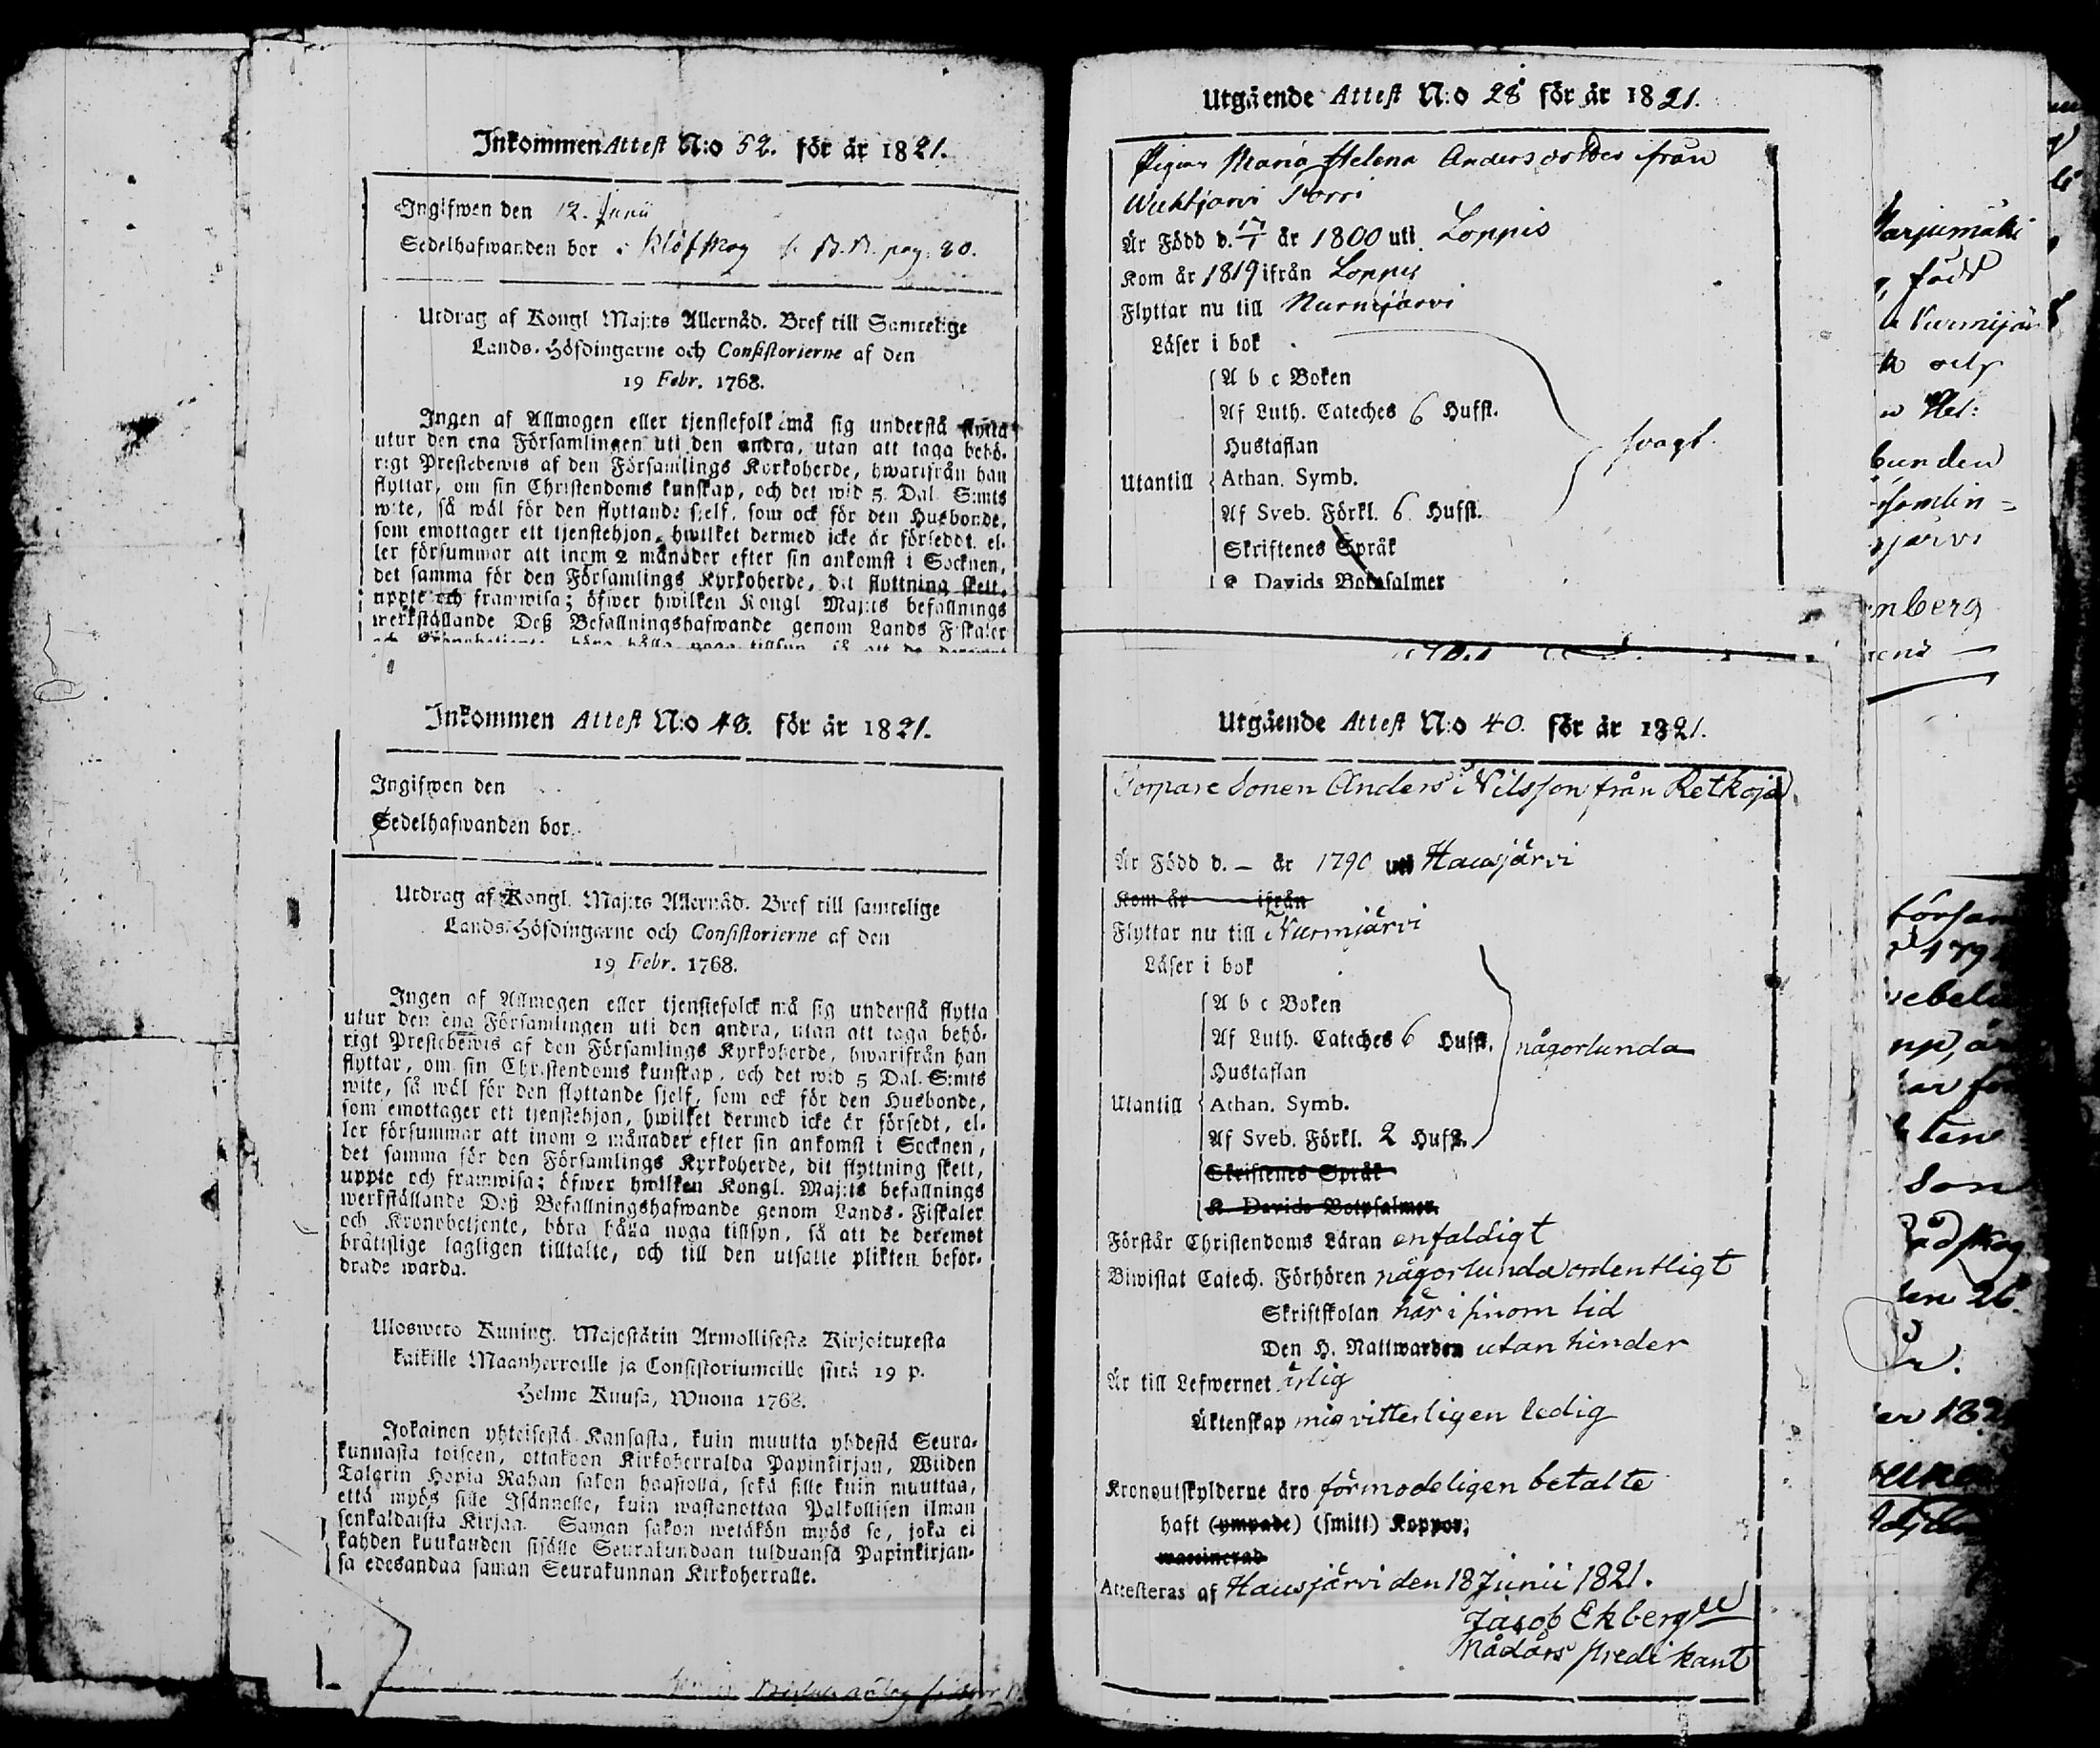 Inkommen Attest N:o 52. för år 1821.
Ingifwen den 12. Junii
Sedelhafwanden bor i Klöfskog pag. 80.
Utdrag af Kongl Maj:ts Allernåd. Bref till Samtelige
Lands-Höfdingarne och Consistorierne af den
19 Febr. 1768.
Ingen af Allmogen eller tjenstefolk må sig understå flytta
utur den ena Församlingen uti den andra, utan att taga behö-
rigt Prestebewis af den Församlings Kyrkoherde, hwarifrån han
flyttar, om sin Christendoms kunskap, och det wid 5. Dal. S:mts
wite, så wäl för den flyttande sjelf, som ock för den Husbonde,
som emottager ett tjenstehjon, hwilket dermed icke är förseddt, el-
ler försummar att inom 2 månader efter sin ankomst i Socknen,
det samma för den Församlings Kyrkoherde, dit flyttning skett,
uppte och framwisa; öfwer hwilken Kongl Maj:ts befallnings
werkställande Deß Befallningshafwande genom Lands Fiskaler
och Kronobetjente, böra hålla noga tillsyn, så att de deremot
Inkommen Attest N:o 48. för år 1821.
Ingifwen den
Sedelhafwanden bor
Utdrag af Kongl. Maj:ts Allernåd. Bref till samtelige
Lands-Höfdingarne och Consistorierne af den
19 Febr. 1768.
Ingen af Allmogen eller tjenstefolck må sig understå flytta
utur den ena Församlingen uti den andra, utan att taga behö-
rigt Prestebewis af den Församlings Kyrkoherde, hwarifrån han
flyttar, om sin Christendoms kunskap, och det wid 5 Dal. S:mts
wite, så wäl för den flyttande sjelf, som ock för den Husbonde,
som emottager ett tjenstehjon, hwilket dermed icke är försedt, el-
ler försummar att inom 2 månader efter sin ankomst i Socknen,
det samma för den Församlings Kyrkoherde, dit flyttning skett,
uppte och framwisa; öfwer hwilken Kongl. Maj:ts befallnings
werkställande Deß Befallningshafwande genom Lands-Fiskaler
och Kronobetjente, böra hålla noga tillsyn, så att de deremot
bråttslige lagligen tilltalte, och till den utsatte plikten befor-
drade warda.
Ulosweto Kuning. Majestätin Armollisesta Kirjoituxesta
kaikille Maanherroille ja Consistoriumeille siitä 19 p.
Helme Kuusa, Wuona 1768.
Jokainen yhteisestä Kansasta, kuin muutta yhdestä Seura-
kunnasta toiseen, ottakoon Kirkoherralda Papinkirjan, Wiiden
Talarin Hopia Rahan sakon haastolla, sekä sille kuin muuttaa,
että myös sille Isännelle, kuin wastanottaa Palkollisen ilman
senkaldaista Kirjaa. Saman sakon wetäkön myös se, joka ei
kahden kuukauden sisälle Seurakundaan tulduansa Papinkirjan-
sa edesandaa saman Seurakunnan Kirkoherralle.
Utgående Attest N:o 28 för år 1821.
Pigan Maria Helena Andersdotter ifrån
Wichtjärvi Porri
Är Född d. 17/1 år 1800 uti Loppis
Kom år 1819 ifrån Loppis
Flyttar nu till Nurmijärvi
Läser i bok
A b c Boken
Af Luth. Cateches 6 Hufst.
Hustaflan
svagt.
Utantill Athan. Symb.
Af Sveb. Förkl. 6 Hufst.
Skriftenes Språk
K Davids Botpsalmer
Utgående Attest N:o 40. för år 1821.
Torpare Sonen Anders Nilsson från Retkoja
Är Född d. – år 1790 uti Hausjärvi
Kom år ifrån
Flyttar nu till Nurmjärvi
Läser i bok
A b c Boken
Af Luth. Cateches 6 Hufst. någorlunda
Hustaflan
Utantill Athan. Symb.
Af Sveb. Förkl. 2 Hufst.
Skriftenes Språk
K Davids Botpsalmer
Förstår Christendoms Läran enfaldigt
Biwistat Catech. Förhören någorlunda ordentligt
Skriftskolan här i sinom tid
Den H. Nattwarden utan hinder
Är till Lefwernet ärlig
Äktenskap mig vitterligen ledig
Kronoutskylderne äro förmodeligen betalte
haft (ympade) (smitt) Koppor,
waccinerad
Attesteras af Hausjärvi den 18 Junii 1821.
Jacob Ekberg
Nådårs predikant
Harjumäki
född
Nurmijär
och
Hel:
bunden
samlin=
järvi
nberg
försam
179
ten
son
den 26.